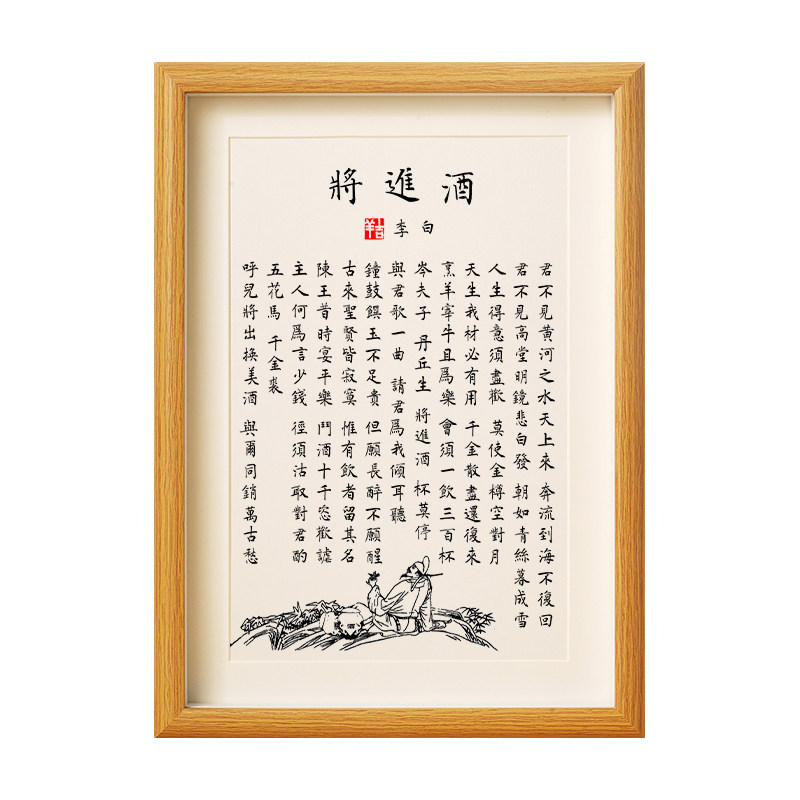 將進酒
李白
吉羊
君不見黃河之水天上來 奔流到海不復回
君不見高堂明鏡悲白發 朝如青絲暮成雪
人生得意須盡歡 莫使金樽空對月
天生我材必有用 千金散盡還復來
烹羊宰牛且爲樂 會須一飲三百杯
岑夫子 丹丘生 將進酒 杯莫停
與君歌一曲 請君爲我傾耳聽
鐘鼓饌玉不足貴 但願長醉不願醒
古來聖賢皆寂寞 惟有飲者留其名
陳王昔時宴平樂 鬥酒十千恣歡謔
主人何爲言少錢 徑須沽取對君酌
五花馬 千金裘
呼兒將出換美酒 與爾同銷萬古愁
酒